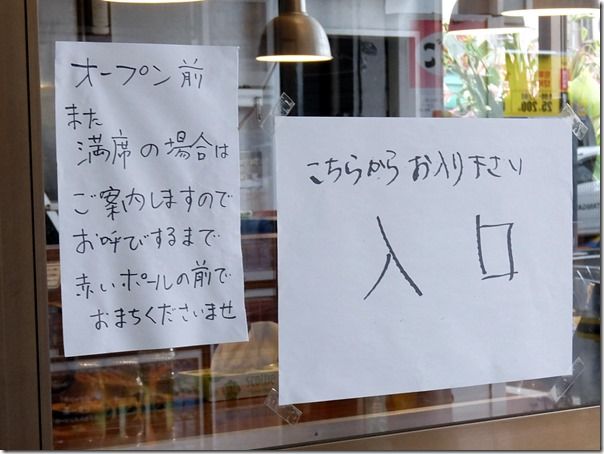 オープン前
また
満席の場合は
ご案内しますので
お呼びするまで
赤いポールの前で
おまちくださいませ
こちらからお入り下さい
入口